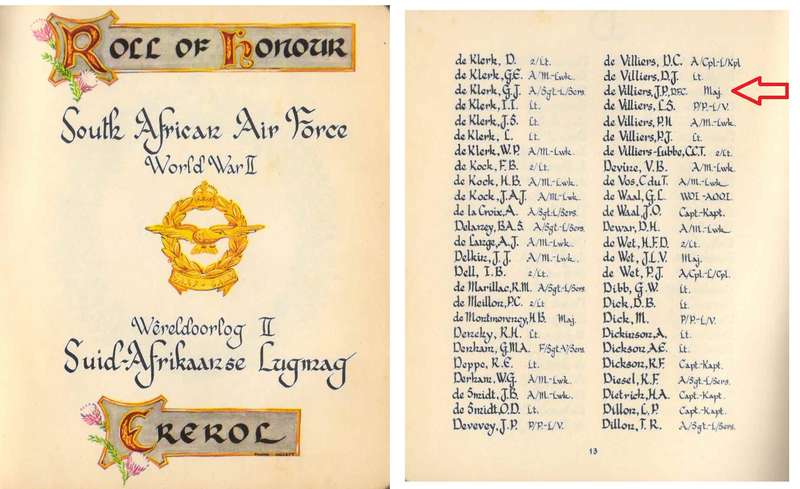 ROLL OF HONOUR
South African Air Force
World War II
Wêreldoorlog II
Suid-Afrikaanse Lugmag
EREROL
de Klerk, D. 2/Lt.
de Klerk, G.E. A/M.-Lwk.
de Klerk, G.J. A/Sgt.-L/Sers.
de Klerk, I.I. Lt.
de Klerk, J.S. Lt.
de Klerk, L. Lt.
de Klerk, W.P. A/M.-Lwk.
de Kock, F.B. 2/Lt.
de Kock, H.B. A/M.-Lwk.
de Kock, J.A.J. A/M.-Lwk.
de la Croix, A. A/Sgt.-L/Sers.
Delarey, B.A.S. A/Sgt.-L/Sers.
de Lange, A.J. A/M.-Lwk.
Delkin, J.J. A/M.-Lwk.
Dell, I.B. 2/Lt.
de Marillac, R.M. A/Sgt.-L/Sers.
de Meillon, P.C. 2/Lt.
de Montmorency, H.B. Maj.
Dencky, R.H. Lt.
Denham, G.M.A. F/Sgt-A/Sers.
Deppe, R.E. Lt.
Derham, W.G. A/M.-Lwk.
de Smidt, J.B. A/M.-Lwk.
de Smidt, O.D. Lt.
Devevey, J.P. P/P.-L/V.
de Villiers, D.C. A/Cpl-L/Kpl
de Villiers, D.J. Lt.
de Villiers, J.P., DSC. Maj.
de Villiers, L.S. P/P.-L/V.
de Villiers, P.H. A/M.-Lwk.
de Villiers, P.J. Lt.
de Villiers-Lubbe, C.C.T. 2/Lt.
Devine, V.B. A/M.-Lwk.
de Vos, C du T. A/M.-Lwk.
de Waal, G.L. WOI-AOOI.
de Waal, J.O. Capt.-Kapt.
Dewar, D.H. A/M.-Lwk.
de Wet, H.F.D. 2/Lt.
de Wet, J.L.V. Maj.
de Wet, P.J. A/Cpl.-L/Cpl.
Dibb, G.W. Lt.
Dick, D.B. Lt.
Dick, M. P/P.-L/V.
Dickinson, A. Lt.
Dickson, A.E. Lt.
Dickson, R.F. Capt.-Kapt.
Diesel, K.F. A/Sgt.-L/Sers.
Dietrich, H.A. Capt.-Kapt.
Dillon, L.P. Capt.-Kapt.
Dillon, T.R. A/Sgt.-L/Sers.
13